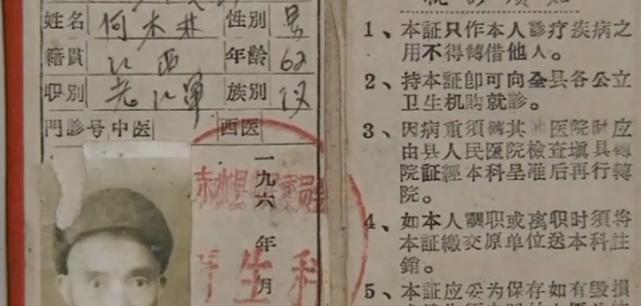 姓名 何木井 性別 男
籍貫 江西 年齡 62
职別 老红軍 族別 汉
門診号 中医 西医
一九六 年 月
生科
1、本証只作本人診疗疾病之
用不得轉借他人。
2、持本証卽可向全县各公立
卫生机购就診。
3、因病重須轉其他医院时应
由县人民医院檢查塡具轉
院証經本科呈准后再行轉
院。
4、如本人調职或离职时須将
本証繳交原单位送本科註
銷。
5、本証应妥为保存如有毁損